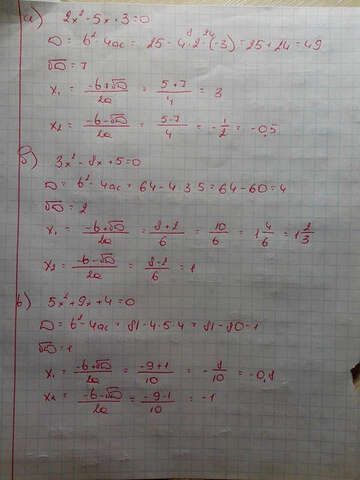 а) 2x² - 5x - 3 = 0
D = b² - 4ac = 25 - 4·2·(-3) = 25 + 24 = 49
√D = 7
x₁ = (-b+√D)/2a = (5+7)/4 = 3
x₂ = (-b-√D)/2a = (5-7)/4 = -1/2 = -0,5
б) 3x² - 8x + 5 = 0
D = b² - 4ac = 64 - 4·3·5 = 64 - 60 = 4
√D = 2
x₁ = (-b+√D)/2a = (8+2)/6 = 10/6 = 1 4/6 = 1 2/3
x₂ = (-b-√D)/2a = (8-2)/6 = 1
в) 5x² + 9x + 4 = 0
D = b² - 4ac = 81 - 4·5·4 = 81 - 80 = 1
√D = 1
x₁ = (-b+√D)/2a = (-9+1)/10 = -8/10 = -0,8
x₂ = (-b-√D)/2a = (-9-1)/10 = -1